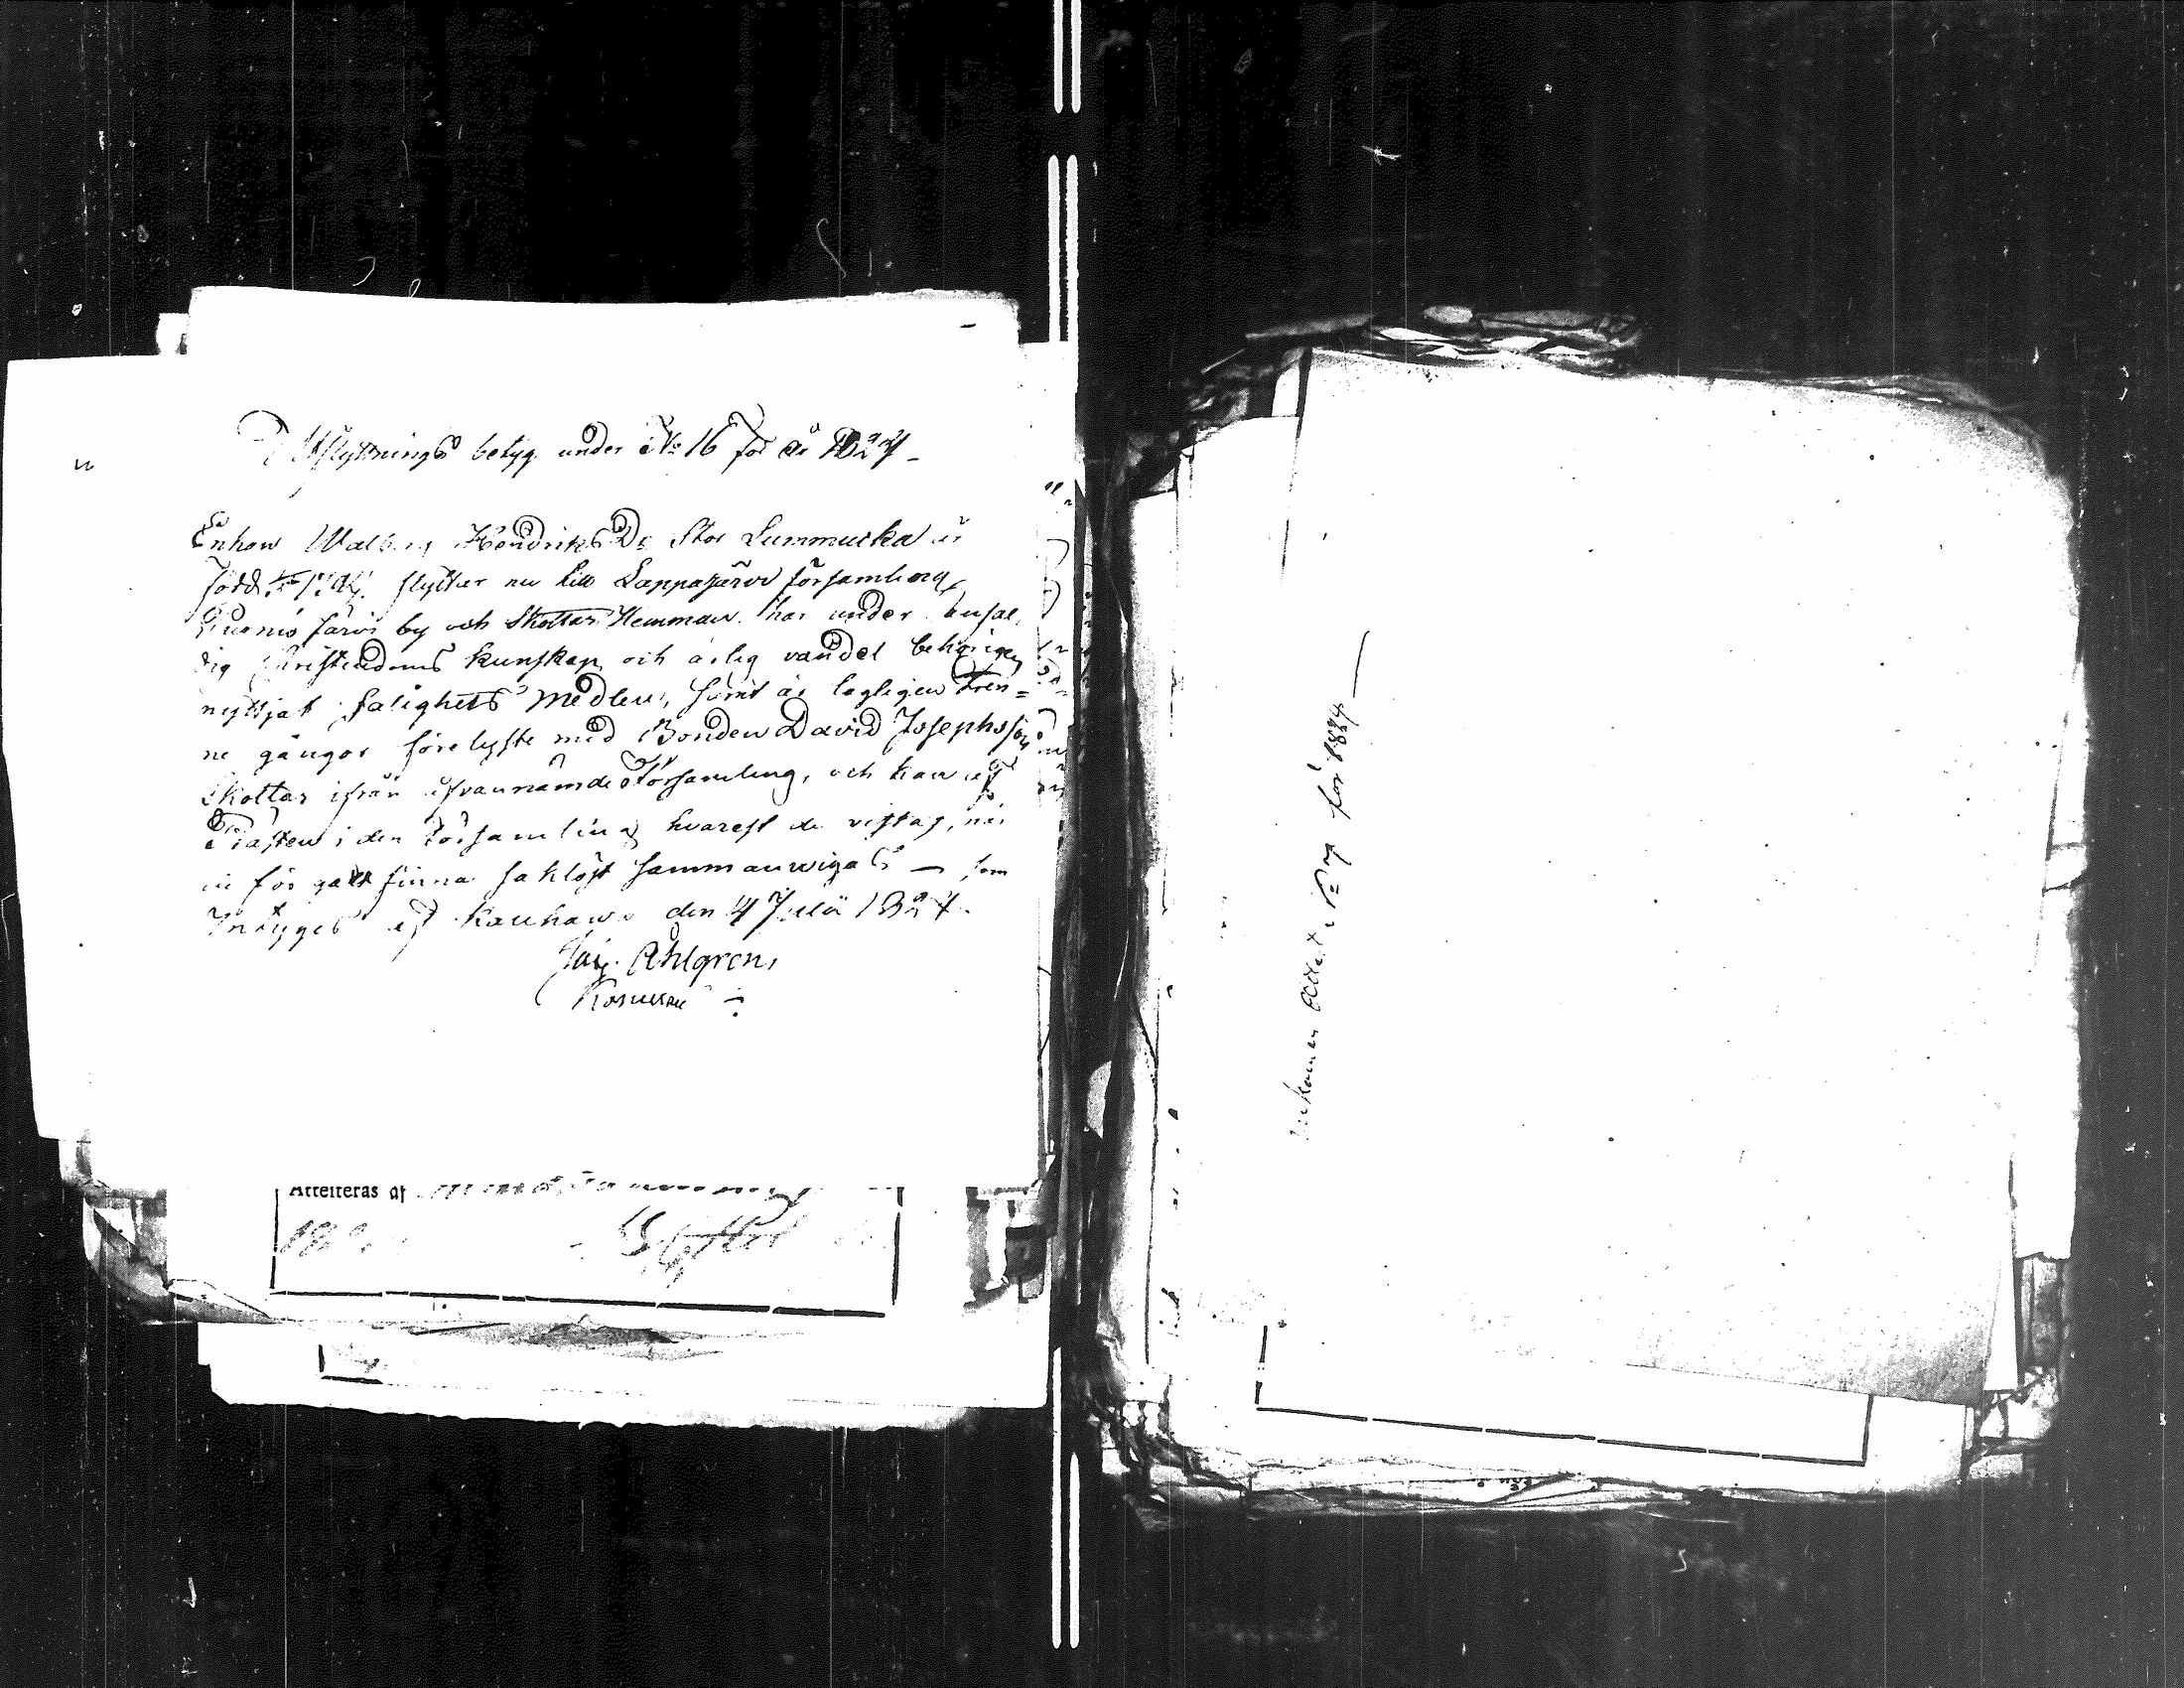 Utflyttnings betyg under No 16 för år 1824 -
Enkan Walborg Hendriks Dr Stor Lummukka är
född 1794. flyttar nu till Lappajärvi församling,
järvi by och Skottar Hemman. har under enfal-
dig Christendoms kunskap och ärlig vandel behörigen
nyttjat salighets medlen, samt är lagligen Tren=
ne gångor förelyste med Bonden David Josephsson
Skottar ifrån ofvannämnde Församling, och kan af
Prästen i den Församling hvarest de vistas, när
för godt finna saklöst sammanvigas — som
intygas af Kauhawa den 4 Julii 1824.
Ahlgren,
Attesteras af
18
Inkomen Attest No 7 för 1824 —